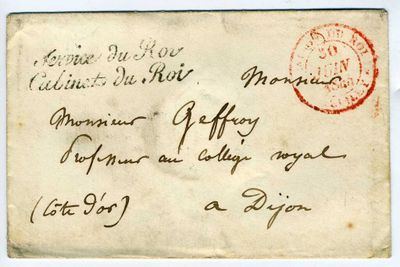 Service du Roi
Cabinet du Roi
DU ROI
20
JUIN
Monsieur
Monsieur Geffroy
Professeur au collége royal
(Côte d'or) a Dijon